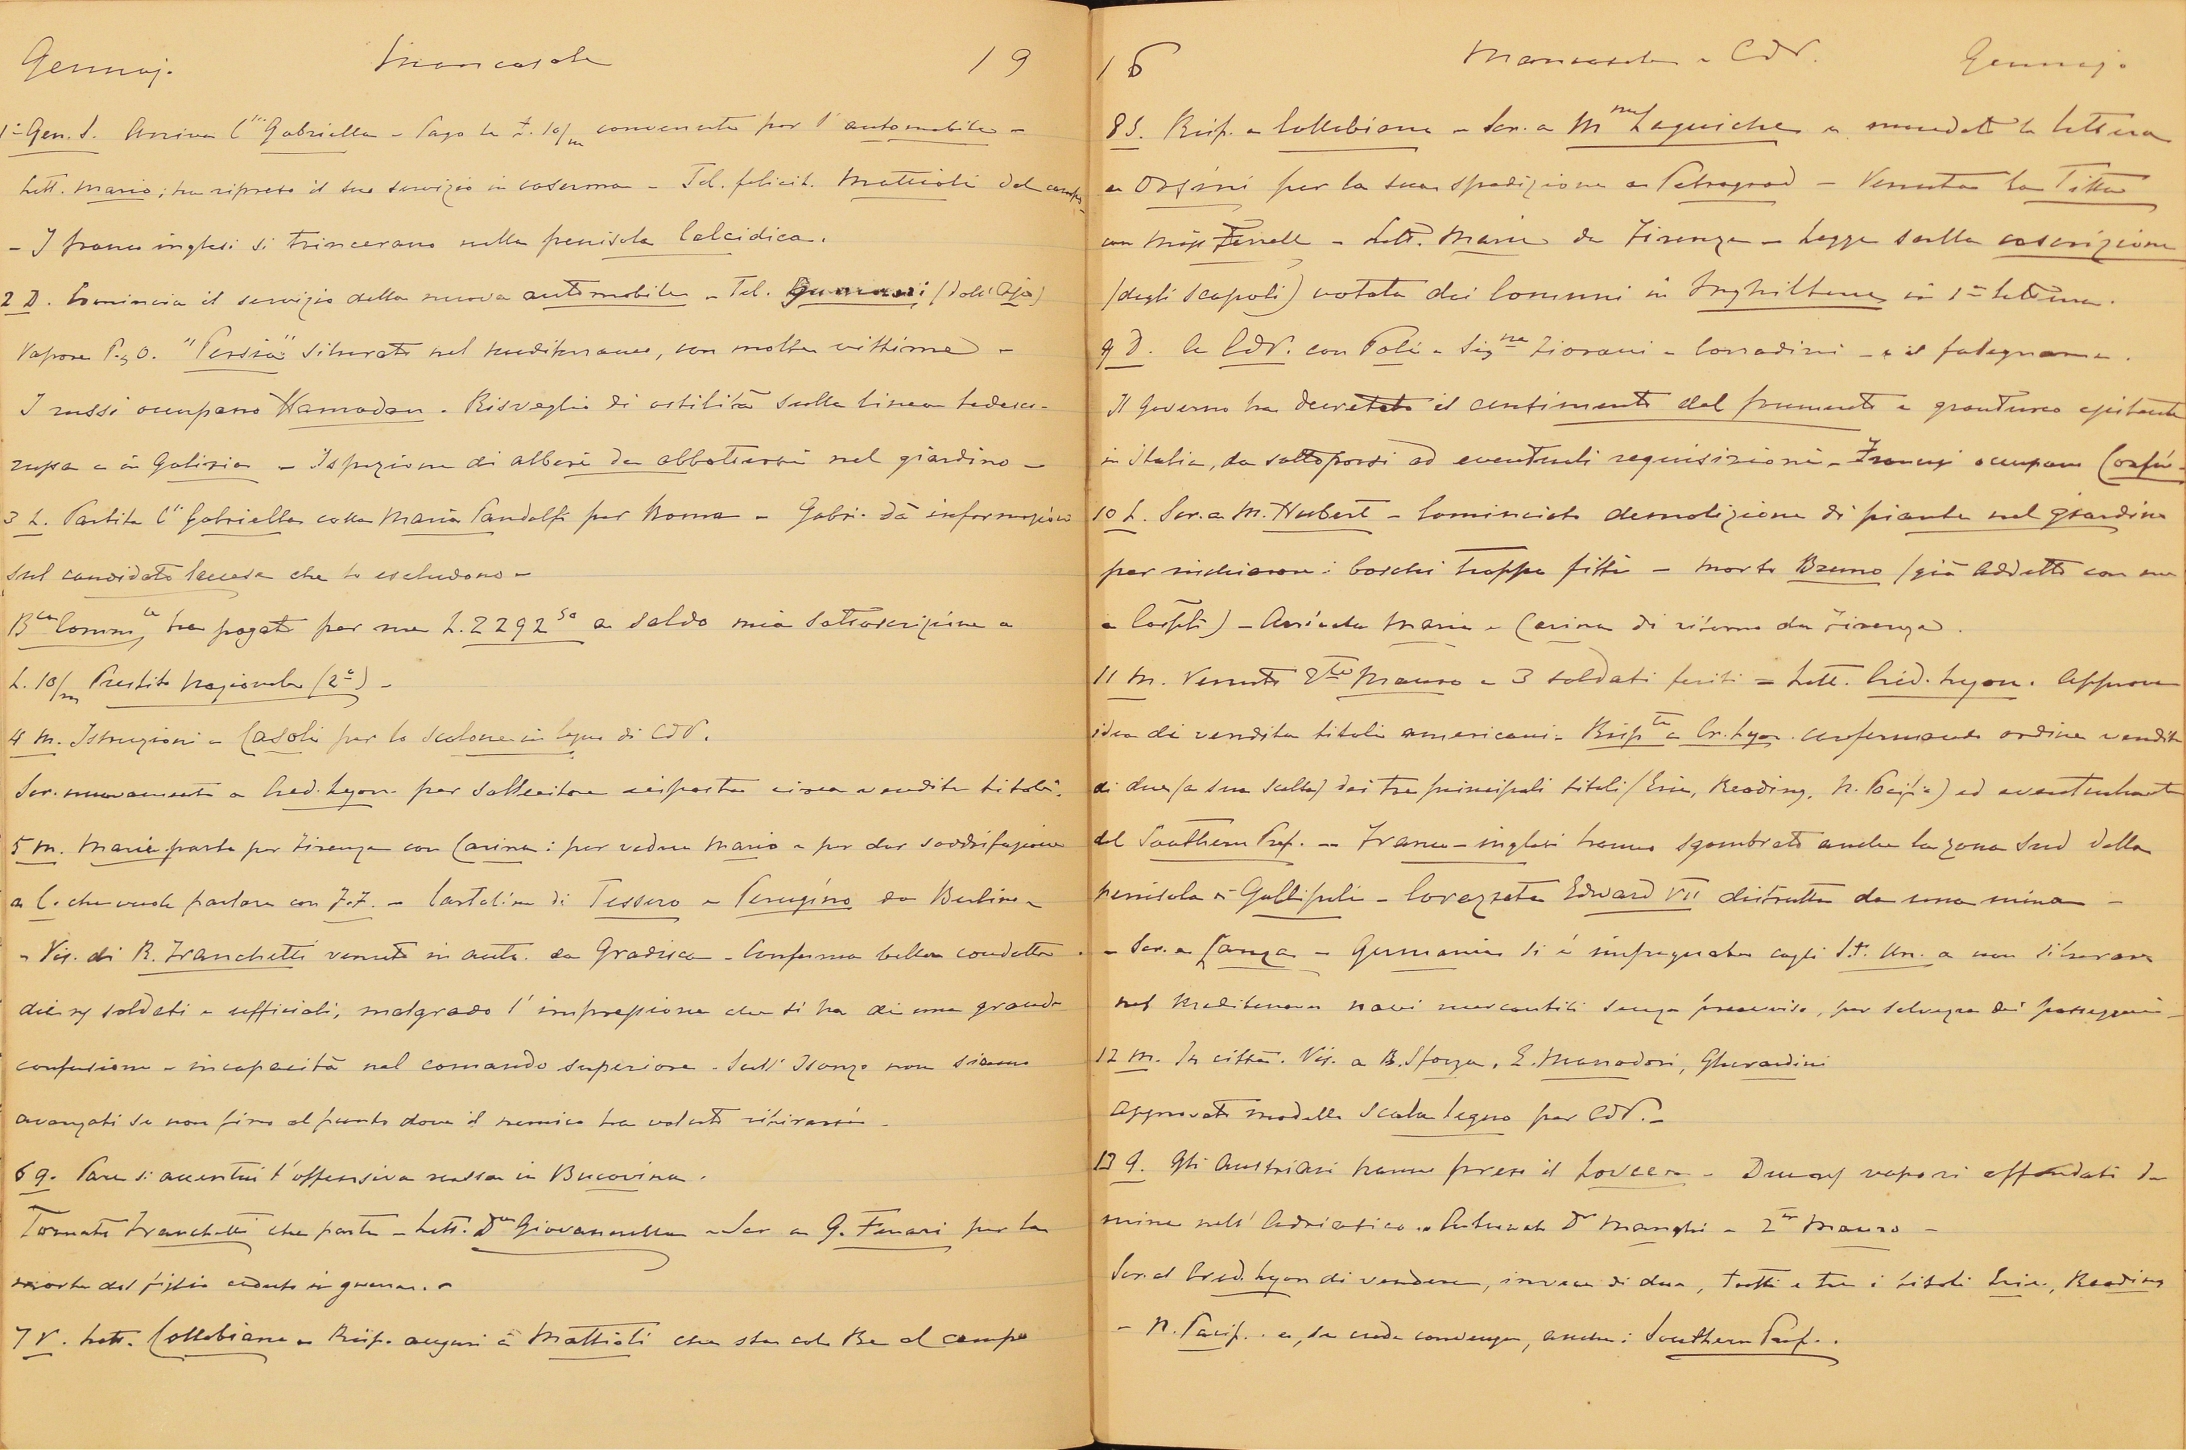 Gennaj. Mancasale 19
1° Gen. S. Arriva C.ssa Gabriella - Pago le £. 10/m convenute per l'automobile -
Lett. Mario; ha ripreso il suo servizio in caserma - Tel. felicit. Mattioli dal campo -
- I franco inglesi si trincerano nella penisola Calcidica.
2 D. Comincia il servizio della nuova automobile - Tel. (dall'Aja)
Vapore P. & O. "Persia" silurato nel mediterraneo, con molte vittime -
I russi occupano Hamadan - Risveglio di ostilità sulla linea tedesco-
russa e in Galizia - Ispezione di alberi da abbattersi nel giardino -
3 L. Partita C.ssa Gabriella colla Maria Pandolfi per Roma - Gabri. dà informazioni
sul candidato che lo escludono -
B.ca Comm.le ha pagato per me L. 2292 50 a saldo mia sottoscrizione a
L. 10/m Prestito Nazionale (2°) -
4 M. Istruzioni a Casoli per lo scalone in legno di CdV.
Scr. nuovamente a Cred. Lyon. per sollecitare risposta circa vendita titoli.
5 M. Maria parte per Firenze con Carina: per vedere Mario e per dar soddisfazione
a C. che vuole parlare con F.F. - Cartolina di Tessero e Perugino da Berlino -
- Vis. di R. Franchetti venuto in auto. da Gradisca - Conferma bella condotta
dei ns/ soldati e ufficiali, malgrado l'impressione che si ha di una grande
confusione e incapacità nel comando superiore - Sull'Isonzo non siamo
avanzati se non fino al punto dove il nemico ha voluto ritirarsi -
6 G. Pare si accentui l'offensiva russa in Bucovina.
Tornato Franchetti che parte - Lett. D.a Giovannella - Scr a G. Ferrari per la
morte del figlio caduto in guerra. -
7 V. Lett. Collobiano - Risp. auguri a Mattioli che sta col Re al campo
16 Mancasale - CdV. Gennaj.
8 S. Risp. a Collobiano - Scr. a M.me Laguiche e mandato la lettera
a Orsini per la sua spedizione a Petrograd - Venuta la Titta
con Miss - Lett. Maria da Firenze - Legge sulla coscrizione
(degli scapoli) votata dai Comuni in Inghilterra in 1a lettura.
9 D. A CdV. con Poli - Sig.na Fiorani - Corradini - e il falegname.
Il Governo ha decretato il censimento del frumento e granturco esistente
in Italia, da sottoporsi ad eventuali requisizioni - Francesi occupano Corfù -
10 L. Scr. a M. Hubert - Cominciata demolizione di piante nel giardino
per rischiarare i boschi troppo fitti - Morto Bruno (già addetto con me
a ) - Arrivata Maria e Carina di ritorno da Firenze.
11 M. Venuto Mauro e 3 soldati feriti = Lett. Cred. Lyon. approva
idea di vendita titoli americani - Risp.ta a Cr. Lyon. confermando ordine vendita
di due (a sua scelta) dei tre principali titoli (Erie, Reading, N. Pacific) ed eventualmente
del Southern Pref. - Franco-inglesi hanno sgombrato anche la zona sud della
penisola di Gallipoli - Corazzata Edward VII distrutta da una mina -
- Scr. a Lanza - Germania si è impegnata cogli St. Un. a non silurare
nel Mediterraneo navi mercantili senza preavviso, per salvezza dei passeggeri -
12 M. In città. Vis. a B. Sforza, E. Manodori, Gherardini
approvato modello scala legno per CdV. -
13 G. Gli Austriaci hanno preso il Lovcen - Due ns/ vapori affondati da
mine nell'Adriatico - D.r Manghi - Mauro -
Scr. al Cred. Lyon di vendere, invece di due, tutti e tre i titoli Erie, Reading
- N. Pacif. - e, se crede convenga, anche i Southern Pref. .